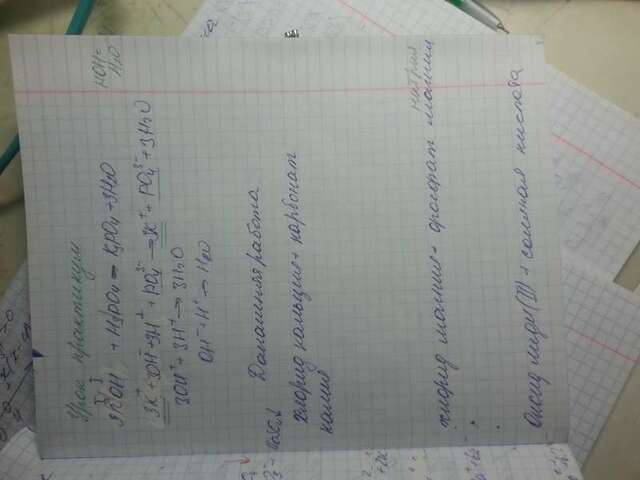 Урок практикум
3KOH + H3PO4 → K3PO4 + 3H2O
HOH= H2O
3K⁺ + 3OH⁻ + 3H⁺ + PO4³⁻ → 3K⁺ + PO4³⁻ + 3H2O
3OH⁻ + 3H⁺ → 3H2O
OH⁻ + H⁺ → H2O
Домашняя работа
хлорид кальция + карбонат
калия
натрия
хлорид магния + фосфат магния
Оксид меди (II) + соляная кислота